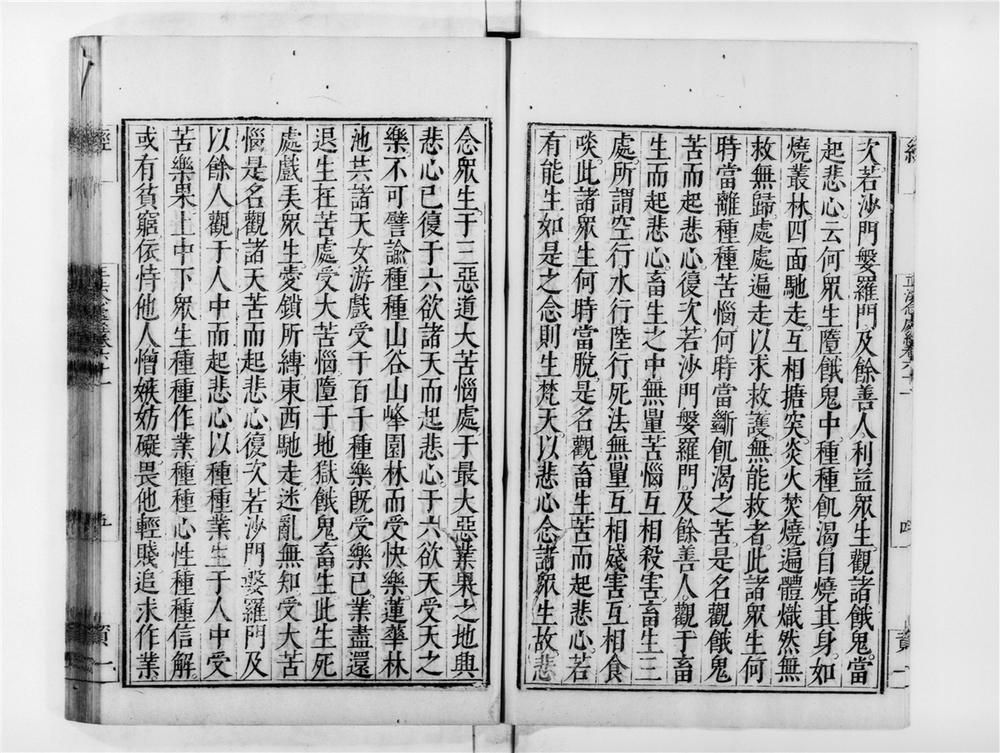 次若沙門婆羅門及餘善人利益眾生觀諸餓鬼當
起悲心云何眾生墮餓鬼中種種飢渴自燒其身如
燒叢林四面馳走互相搪突炎火焚燒遍體熾然無
救無歸處處遍走以求救護無能救者此諸眾生何
時當離種種苦惱何時當斷飢渴之苦是名觀餓鬼
苦而起悲心復次若沙門婆羅門及餘善人觀于畜
生而起悲心畜生之中無量苦惱互相殺害畜生三
處所謂空行水行陸行死法無量互相殘害互相食
啖此諸眾生何時當脫是名觀畜生苦而起悲心若
有能生如是之念則生梵天以悲心念諸眾生故悲
念眾生于三惡道大苦惱處于最大惡業果之地與
悲心已復于六欲諸天而起悲心于六欲天受天之
樂不可譬諭種種山谷山峰園林而受快樂蓮華林
池共諸天女游戲受千百千種樂既受樂已業盡還
退生在苦處受大苦惱墮于地獄餓鬼畜生此生死
處戲弄眾生愛鎖所縛東西馳走迷亂無知受大苦
惱是名觀諸天苦而起悲心復次若沙門婆羅門及
以餘人觀于人中而起悲心以種種業生于人中受
苦樂果上中下眾生種種作業種種心性種種信解
或有貧窮依恃他人憎嫉妨礙畏他輕賤追求作業
經
五
資一
四